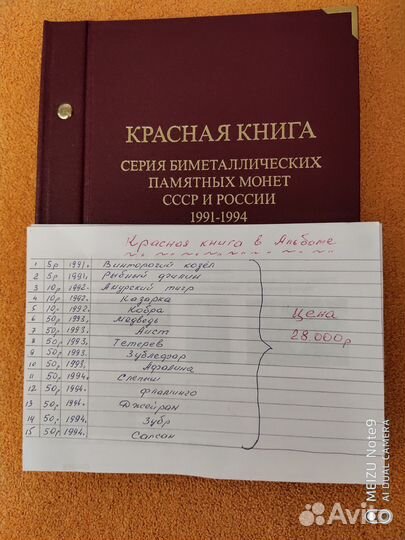 КРАСНАЯ КНИГА
СЕРИЯ БИМЕТАЛЛИЧЕСКИХ
ПАМЯТНЫХ МОНЕТ
СССР И РОССИИ
1991-1994
Красная книга в Альбоме
1 5р 1991г. Винторогий козёл
2 5р 1991. Рыбный филин
3 10р 1992. Амурский тигр
4 10р 1992. Казарка
5 10р 1992. Кобра
6 50р 1993. Медведь
7 50р 1993. Аист
8 50р 1993. Тетерев
9 50р 1993. Зублефар
10 50р 1993. Афалина
11 50р 1994г. Слепыш
12 50р 1994. Фламинго
13 50р 1994. Джейран
14 50р 1994. Зубр
15 50р 1994. Сапсан
Цена
28.000р
MEIZU Note9
AI DUAL CAMERA
Avito